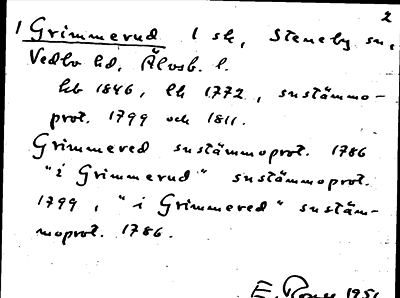 2
1 Grimmerud 1 sk, Steneby sn,
Vedbo hd, Älvsb. l.
hb 1846, lk 1772, sustämmo-
prot. 1799 och 1811.
Grimmered sustämmoprot. 1786
"i Grimmerud" sustämmoprot.
1799, "i Grimmered" sustäm-
moprot. 1786.
E. 1951